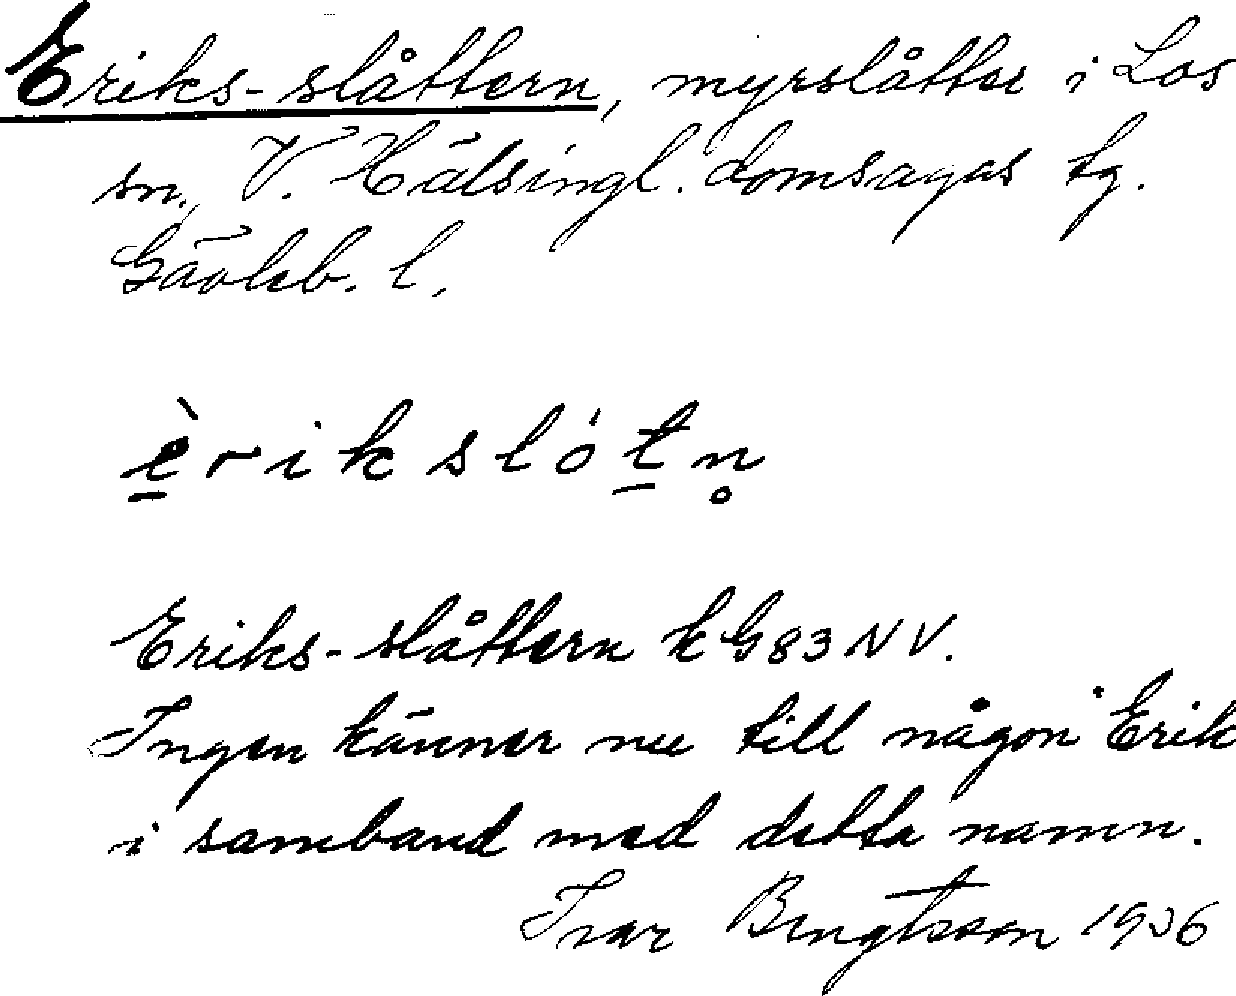 Eriks-slåttern, myrslåtter i Los
sn., V. Hälsingl. domsagas tg.
Gävleb. l.
è̱rikslóṯn̥
Eriks-slåttern k G83NV.
Ingen känner nu till någon Erik
i samband med detta namn.
Ivar Bengtsson 1936